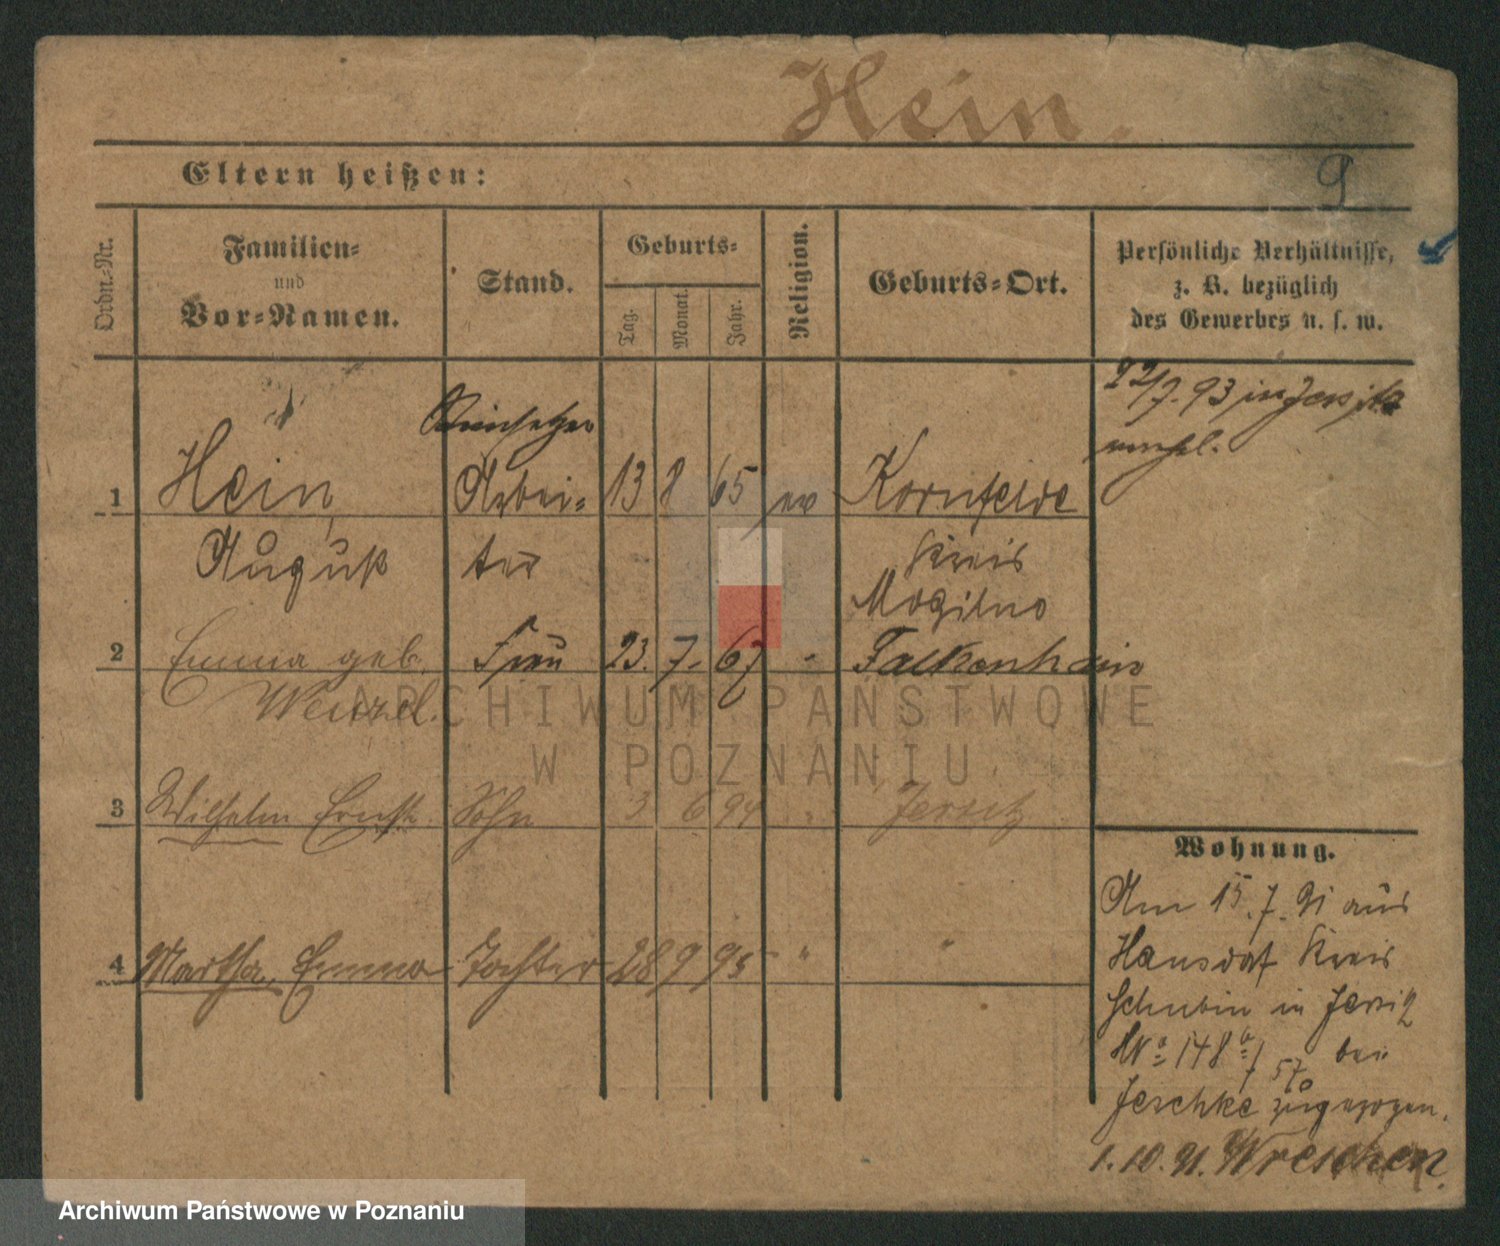 Hein.
Eltern heißen:
9
Ordn.-Nr.
Familien-
und
Vor-Namen.
Stand.
Geburts-
Tag.
Monat.
Jahr.
Religion.
Geburts-Ort.
Persönliche Verhältnisse,
z. B. bezüglich
des Gewerbes u. s. w.
22/7. 93 in Jersitz
Steinsetzer
1 Hein, Arbei- 13 8 65 ev Kornfelde
August ter Kreis
Mogilno
2 Emma geb. Frau 23. 7. 67 - Falkenhain
Wenzel.
ARCHIWUM PAŃSTWOWE
W POZNANIU
3 Wilhelm Ernst. Sohn 3 6 94 " Jersitz
4 Martha, Emma Tochter 28 9 95 " "
Wohnung.
Am 15. 7. 91 aus
Hansdorf Kreis
Schubin in Jersitz
No 148 b/57 bei
Jeschke zugezogen.
1. 10. 91. Wreschen.
Archiwum Państwowe w Poznaniu